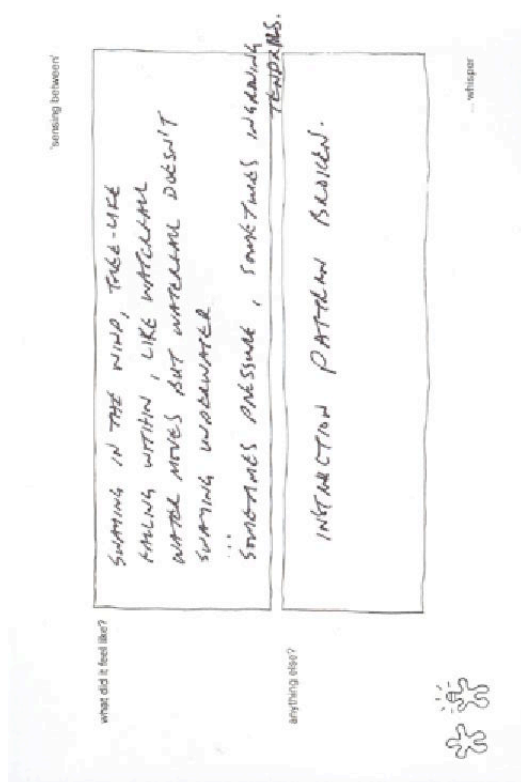 'sensing between'
what did it feel like?
SWAYING IN THE WIND, TREE-LIKE
FALLING WITHIN, LIKE WATERFALL
WATER MOVES BUT WATERFALL DOESN'T
SWAYING UNDERWATER
...
SOMETIMES PRESSURE, SOMETIMES INGRAWING
TENDRILS.
anything else?
INSTRUCTION PATTERN BROKEN.
... whisper